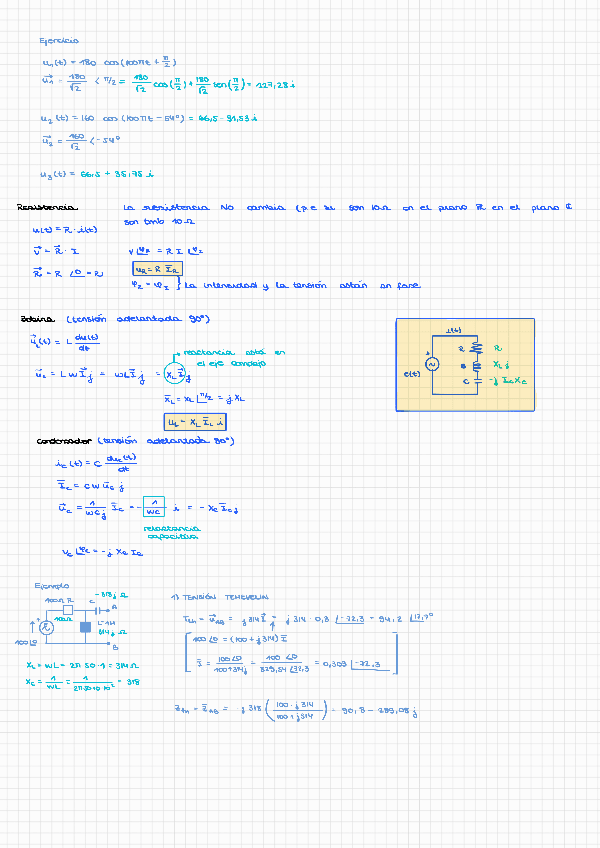 Ejercicio
u₁(t) = 180 cos(100πt + π/2)
u⃗₁ = 180/√2 < π/2 = 180/√2 cos(π/2) + 180/√2 sen(π/2) = 127,28 i
u₂(t) = 160 cos(100πt - 54º) = 66,5 - 91,53 i
u⃗₂ = 160/√2 < -54º
u₃(t) = 66,5 + 35,75 i
Resistencia
La resistencia NO cambia (p.e si son 10Ω en el plano R en el plano ℂ
son tmb 10Ω
u(t) = R · i(t)
V⃗ = R⃗ · I
V∠φ_R = R I ∠φ_I
R⃗ = R ∠0 = R
u_R = R I̅_R
φ_I = φ_I } La intensidad y la tensión están en fase
Bobina (tensión adelantada 90º)
u⃗_L(t) = L du(t)/dt
reactancia está en
el eje complejo
u⃗_L = L w I⃗j = wL I⃗j = X_L I⃗j
X̅_L = X_L ∠π/2 = j X_L
u_L = X_L I̅_L i
i(t)
R
R
e(t)
B
X_L j
C
-j I̅c Xc
Condensador (tensión adelantada 90º)
i_c(t) = C du_c(t)/dt
I̅_c = C w u̅_c j
u⃗_c = 1/wCj I̅_c = - 1/wC i = - X_c I̅_c j
reactancia
capacitiva
V_c ∠φc = -j X_c I_c
Ejemplo
-318j Ω
100Ω R C A
L = 1H
314j Ω
100∠0
B
X_L = wL = 2π 50 · 1 = 314Ω
X_c = 1/wL = 1/2π50·10·10⁻⁶ = 318
1) TENSIÓN THEHEVELIN
U_th = u⃗_AB = j 314 I⃗ = j 314 · 0,3 ∠-72,3 = 94,2 ∠17,7º
100∠0 = (100 + j314) I̅
I̅ = 100∠0/100+314j = 100∠0/329,54∠72,3 = 0,303 ∠-72,3
Z_th = Z̅_AB = -j 318 (100 · j 314/100 + j 314) = 90,8 - 289,08 j